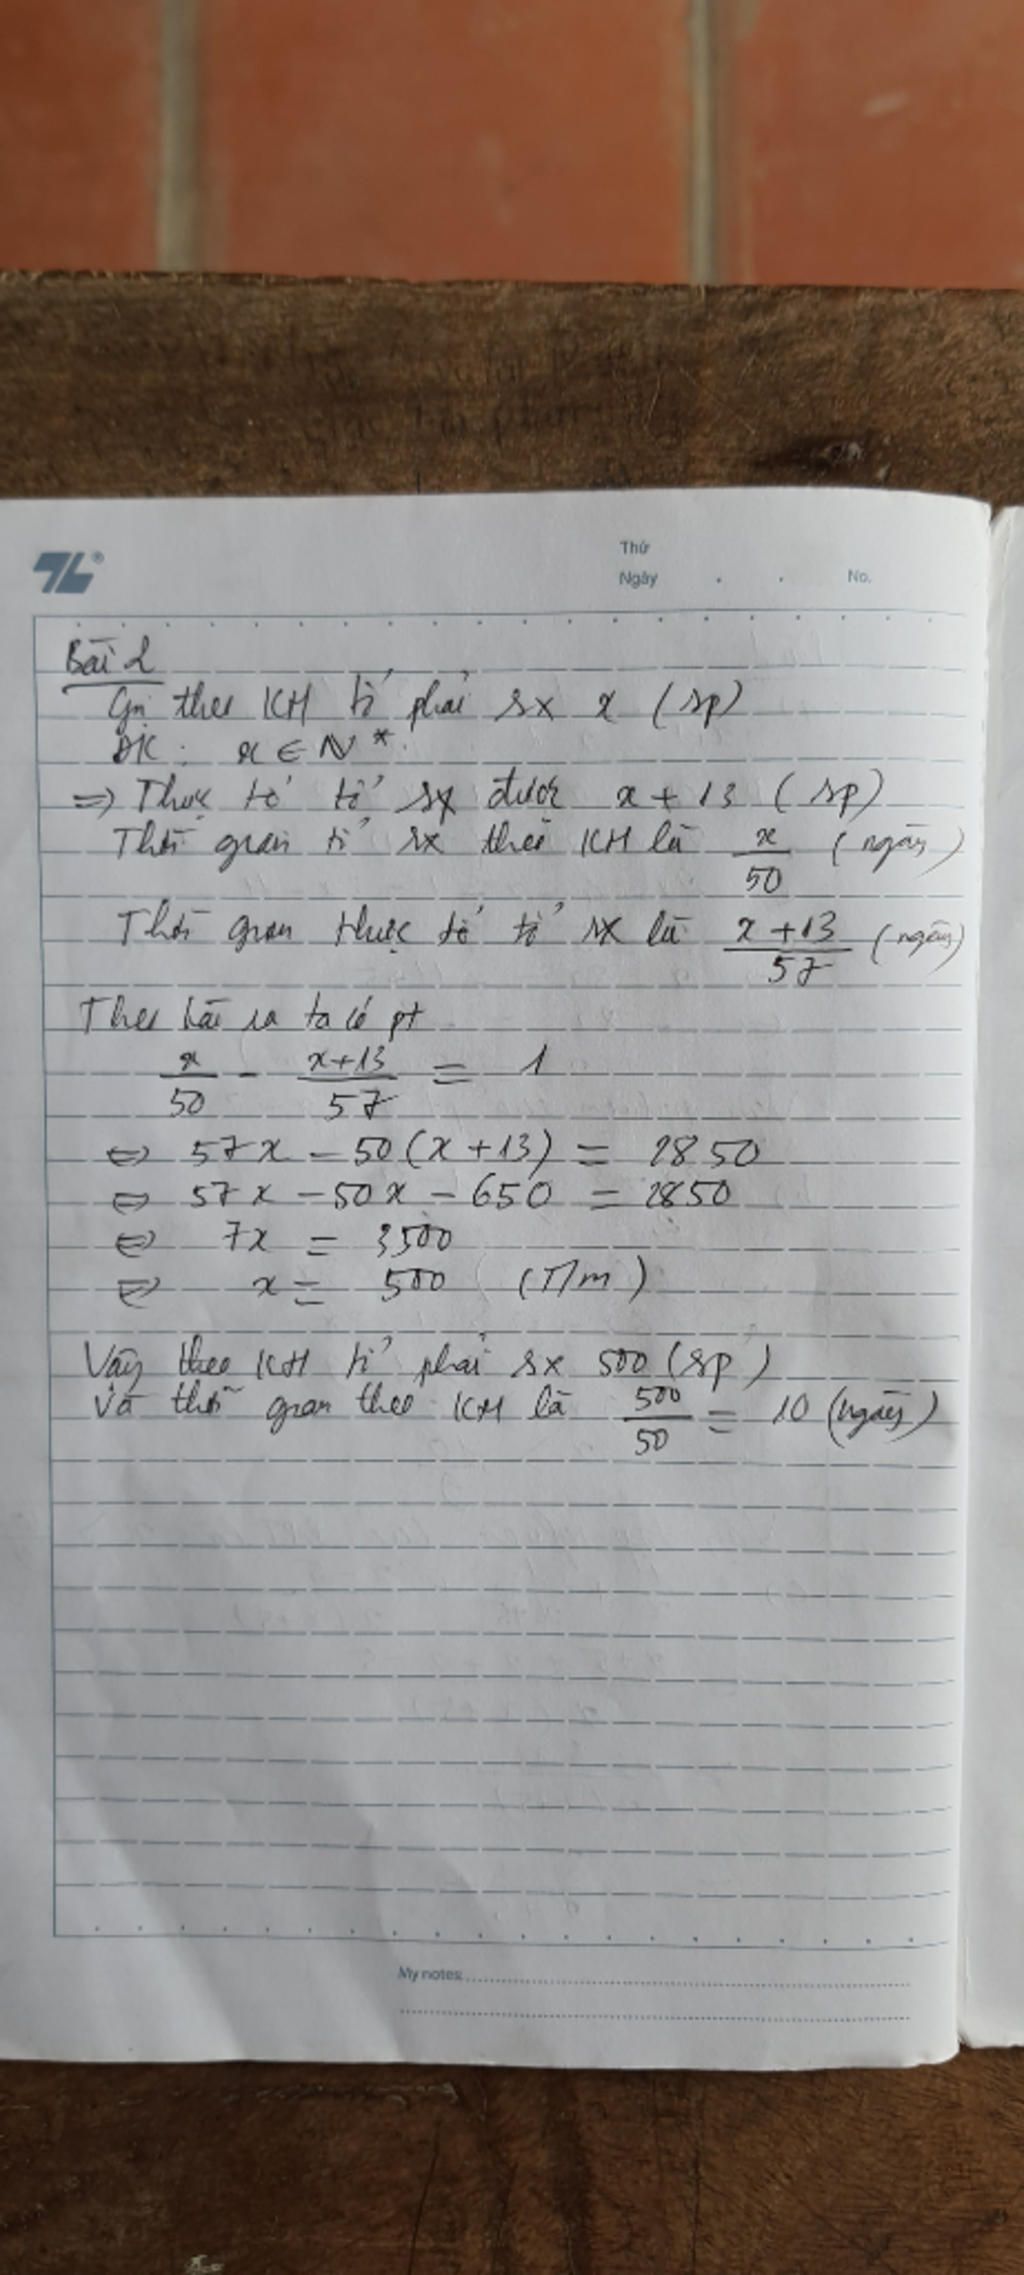 TL®
Thứ
Ngày . . No.
Bài 2
Gọi theo KH tổ phải sx x (sp)
ĐK: x ∈ N*.
=> Thực tế tổ sx được x + 13 (sp)
Thời gian tổ sx theo KH là x/50 (ngày)
Thời gian thực tế tổ sx là (x+13)/57 (ngày)
Theo bài ra ta có pt
x/50 - (x+13)/57 = 1
⇔ 57x - 50(x+13) = 2850
⇔ 57x - 50x - 650 = 2850
⇔ 7x = 3500
⇔ x = 500 (T/m)
Vậy theo KH tổ phải sx 500 (sp)
Và thời gian theo KH là 500/50 = 10 (ngày)
My notes: